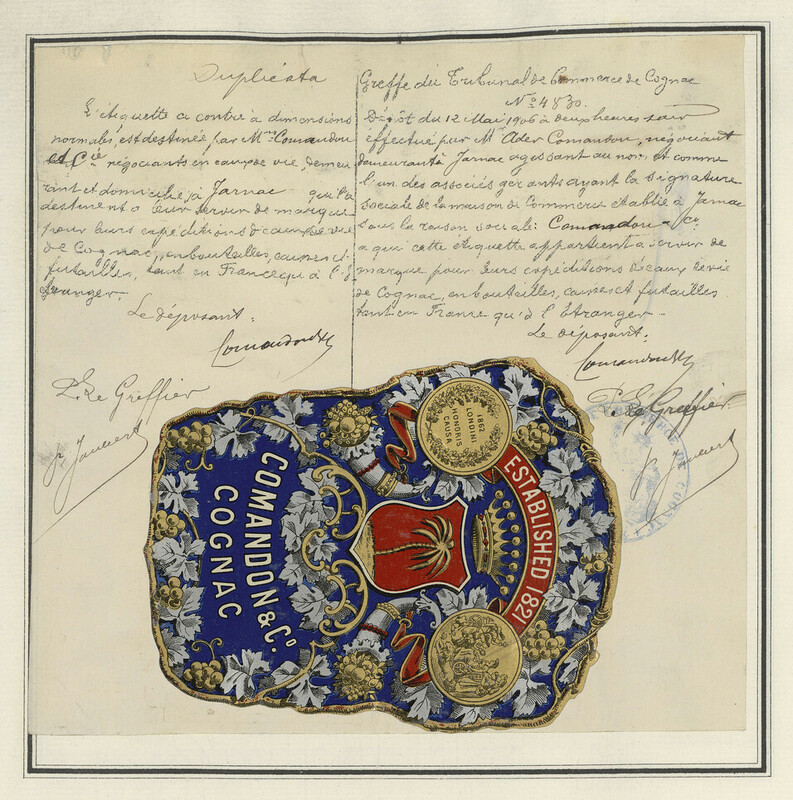 Duplicata
L'étiquette ci contre à dimensions
normales, est destinée, par Mrs Comandon
et Cie négociants en eaux de vie, demeu-
rant et domiciliés à Jarnac qui la
destinent à leur servir de marque
pour leurs expéditions d'eaux de vie
de Cognac, en bouteilles, caisses et
futailles, tant en France qu'à l'É-
tranger.
Le déposant:
Comandon & Co
P. Le Greffier
Greffe du Tribunal de Commerce de Cognac
No 4830.
Dépôt du 12 Mai 1906 à deux heures soir
effectué par Mr Ader Comandon, négociant
demeurant à Jarnac agissant au nom et comme
l'un des associés gérants ayant la signature
sociale de la maison de Commerce établie à Jarnac
sous la raison sociale: Comandon & Co
à qui cette étiquette appartient à servir de
marque pour leurs expéditions d'eaux de vie
de Cognac, en bouteilles, caisses et futailles
tant en France qu'à l'Etranger.
Le déposant:
Comandon & Co
P. Le Greffier
1862
LONDINI
HONORIS
CAUSA
ESTABLISHED 1821
COMANDON & Co.
COGNAC